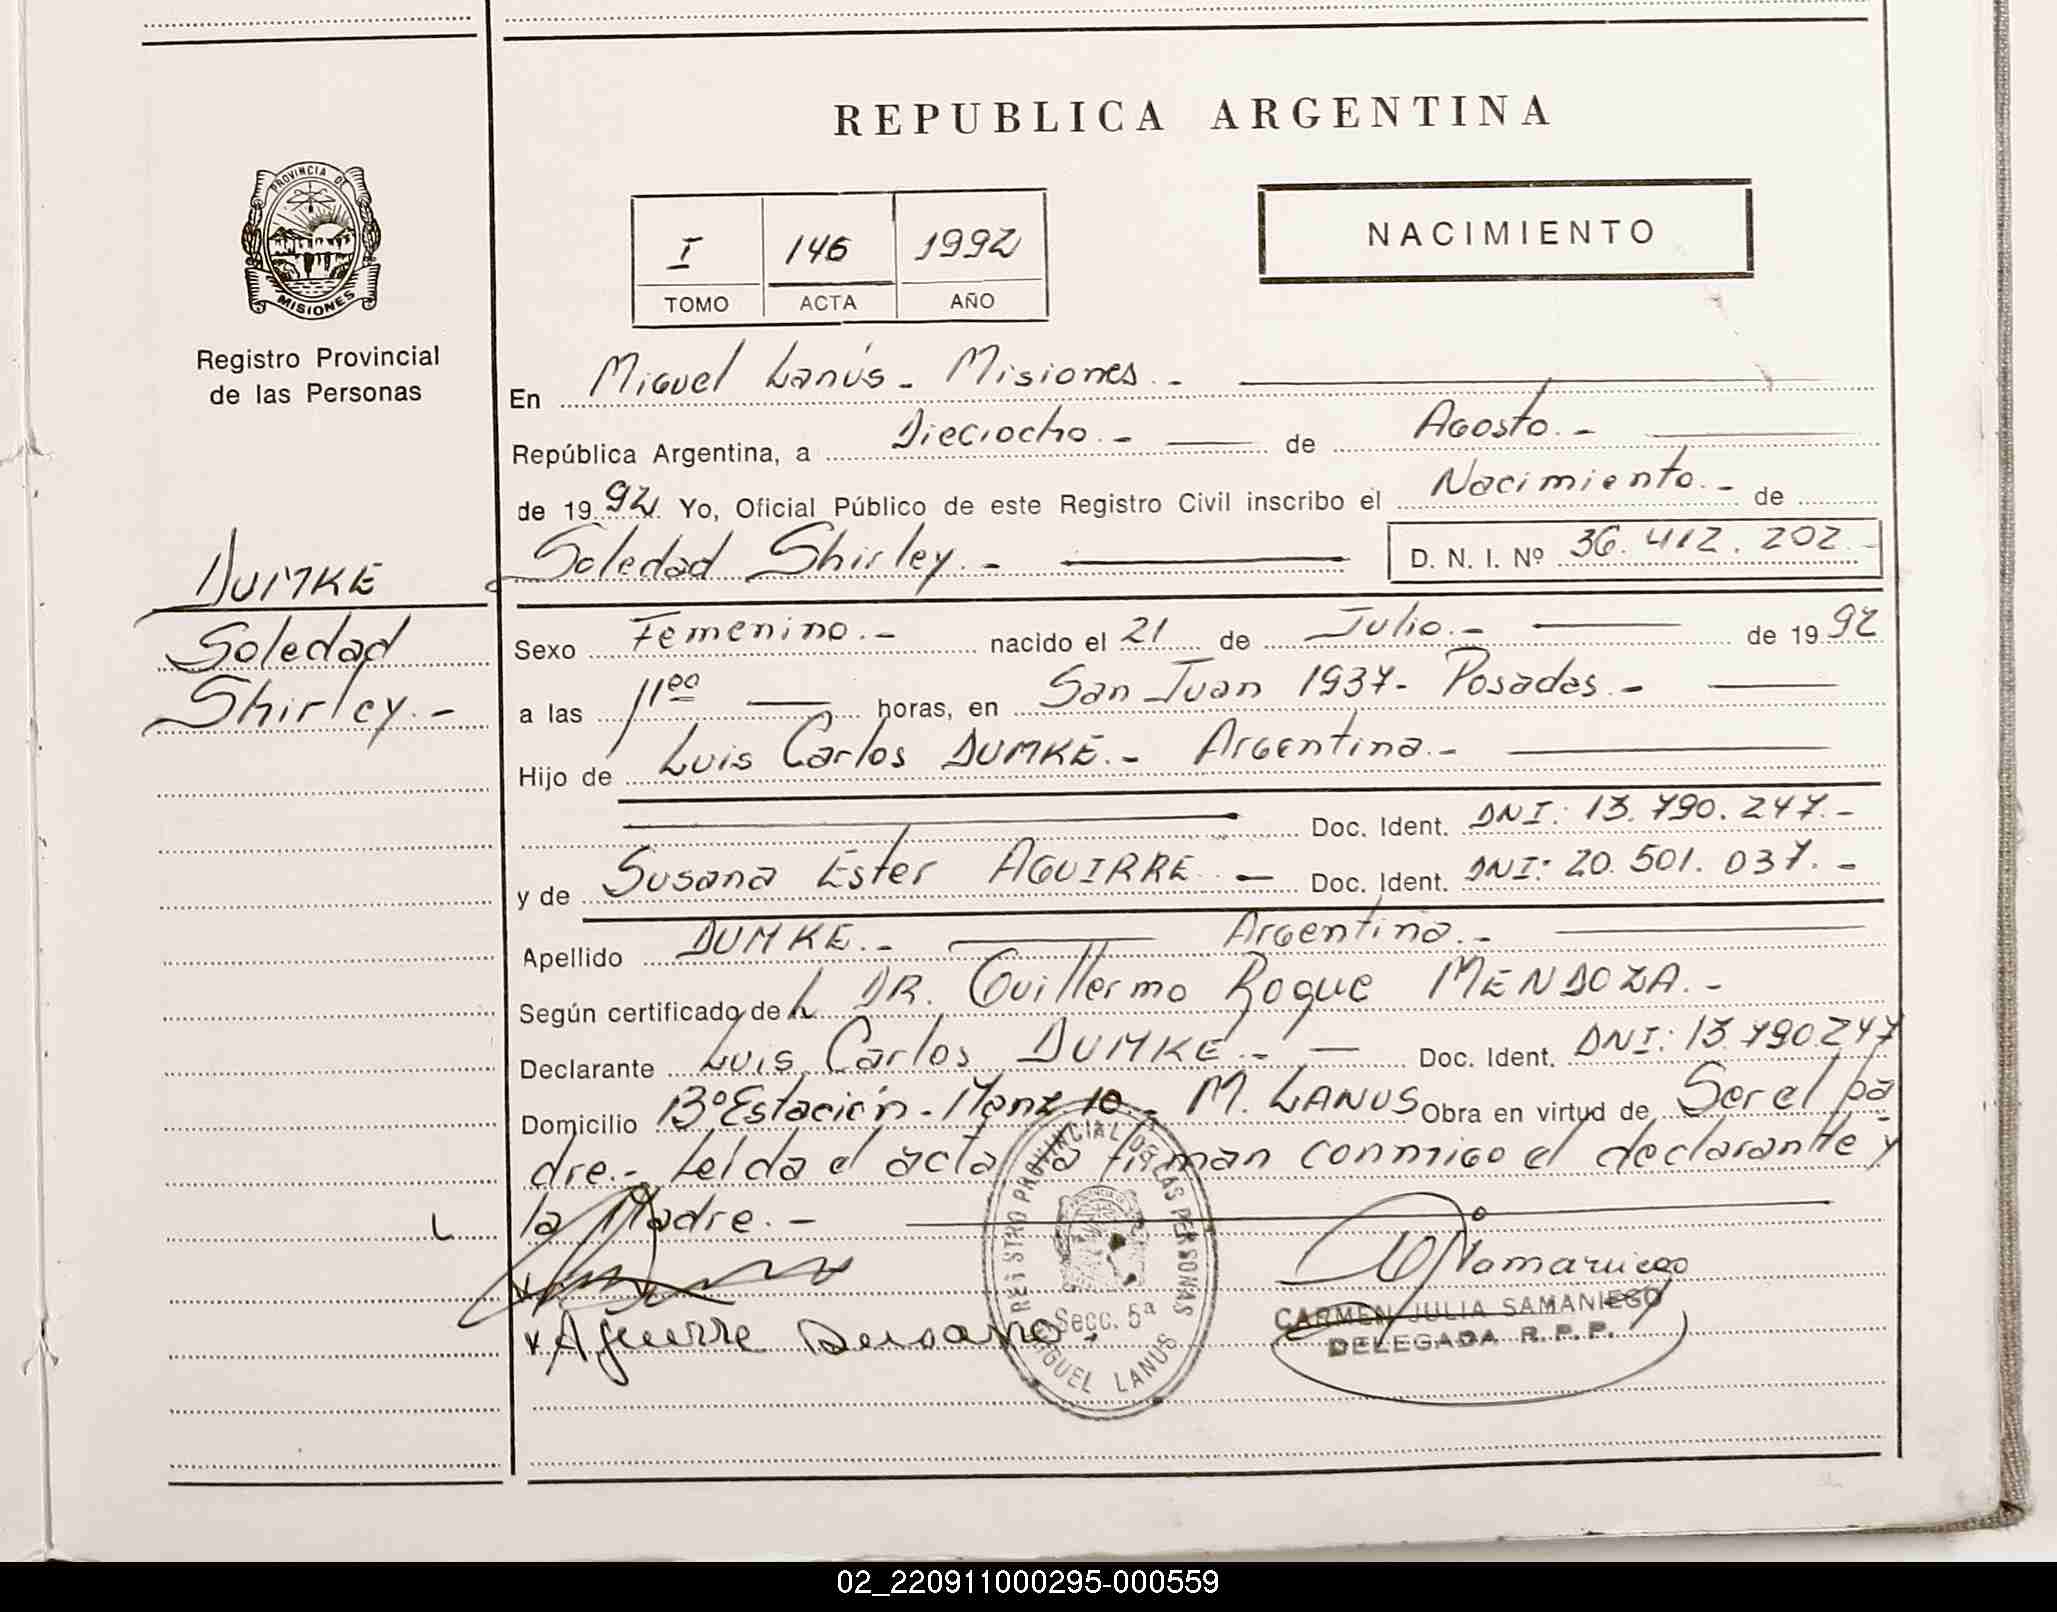 REPUBLICA ARGENTINA
PROVINCIA DE
MISIONES
Registro Provincial
de las Personas
I 146 1992
TOMO ACTA AÑO
NACIMIENTO
En Miguel Lanús - Misiones.-
República Argentina, a Dieciocho.- de Agosto.-
de 1992 Yo, Oficial Público de este Registro Civil inscribo el Nacimiento.- de
Soledad Shirley.- D. N. I. Nº 36.412.202.-
DUMKE
Soledad
Shirley.-
Sexo Femenino.- nacido el 21 de Julio.- de 1992
a las 11⁰⁰ horas, en San Juan 1937- Posadas.-
Hijo de Luis Carlos DUMKE.- Argentina.-
Doc. Ident. DNI: 13.790.247.-
y de Susana Ester AGUIRRE.- Doc. Ident. DNI: 20.501.037.-
Apellido DUMKE.- Argentina.-
Según certificado del DR. Guillermo Roque MENDOZA.-
Declarante Luis Carlos DUMKE.- Doc. Ident. DNI: 13.790247
Domicilio Bº Estación - Manz 10.- M. LANUS Obra en virtud de Ser el pa
dre.- Leída el acta la firman conmigo el declarante y
la Madre.-
x Aguirre Susana.
REGISTRO PROVINCIAL DE LAS PERSONAS
Secc. 5ª
MIGUEL LANUS
CARMEN JULIA SAMANIEGO
DELEGADA R.P.P.
02_220911000295-000559